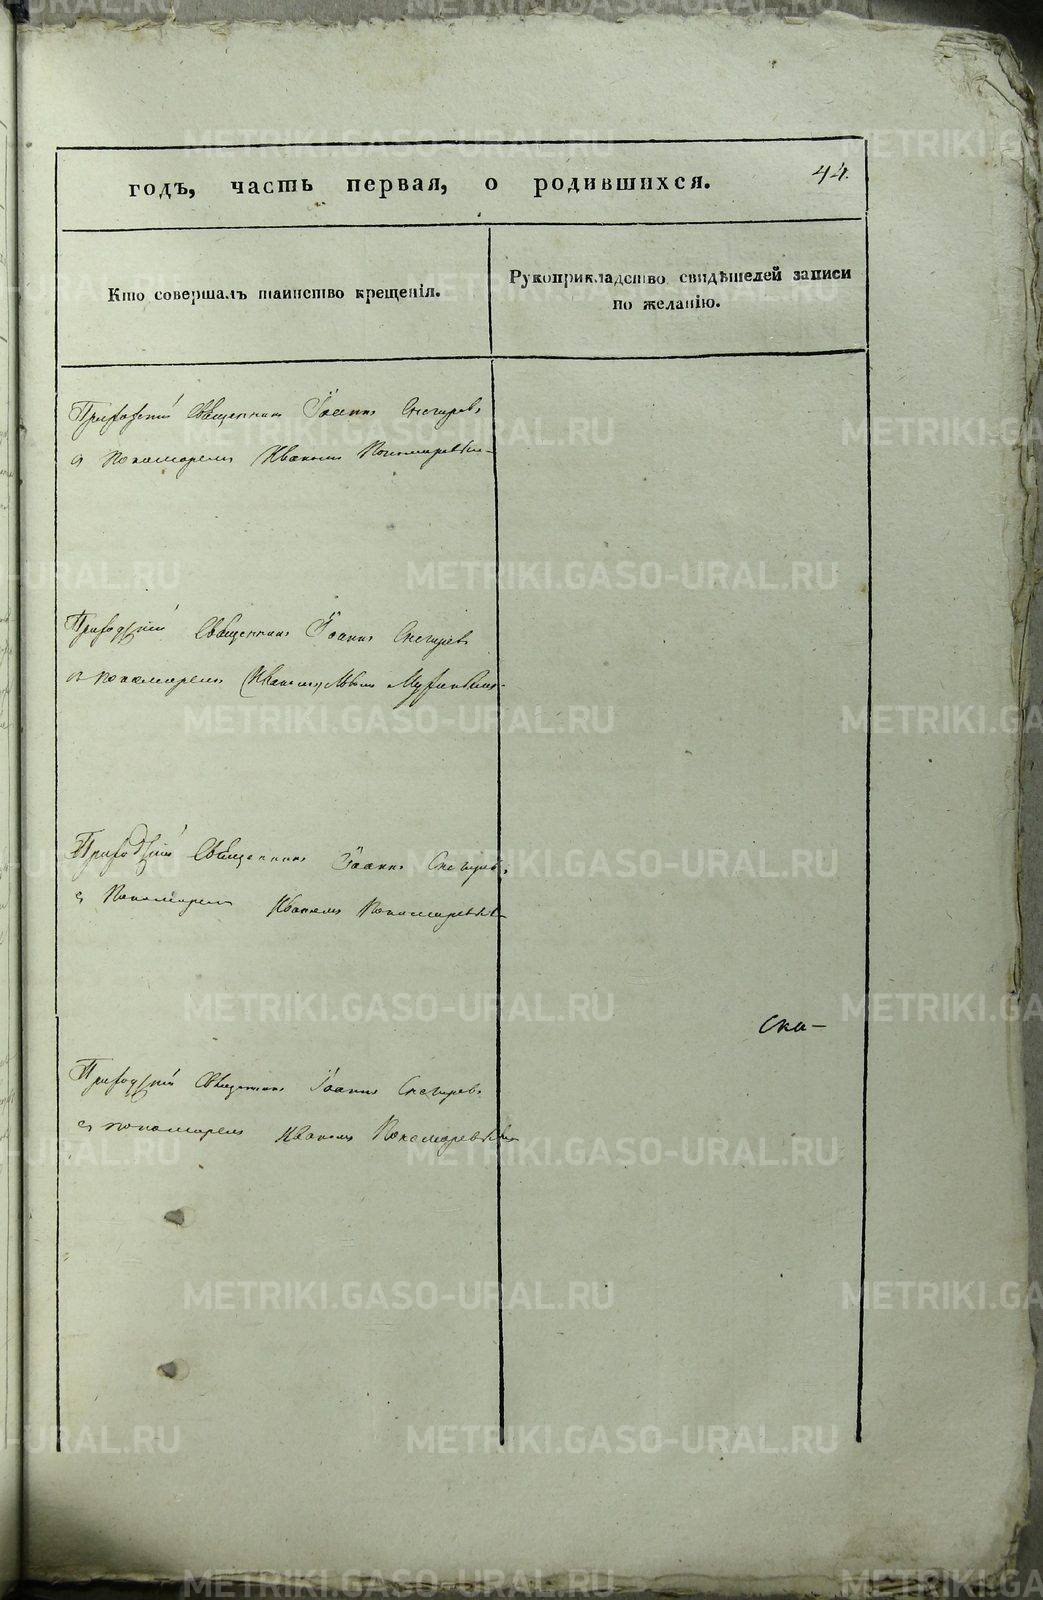 годъ, часть первая, о родившихся.
44.
Кто совершалъ таинство крещенія.
Рукоприкладство свидѣтелей записи
по желанію.
Приходскій Священникъ Іоаннъ Снегиревъ
съ Пономаремъ Иваномъ Пономаревымъ
Приходскій Священникъ Іоаннъ Снегиревъ
съ пономаремъ Иваномъ
Приходскій Священникъ Іоаннъ Снегиревъ
съ Пономаремъ Иваномъ Пономаревымъ
Ска-
Приходскій Священникъ Іоаннъ Снегиревъ
съ пономаремъ Иваномъ Пономаревымъ
METRIKI.GASO-URAL.RU